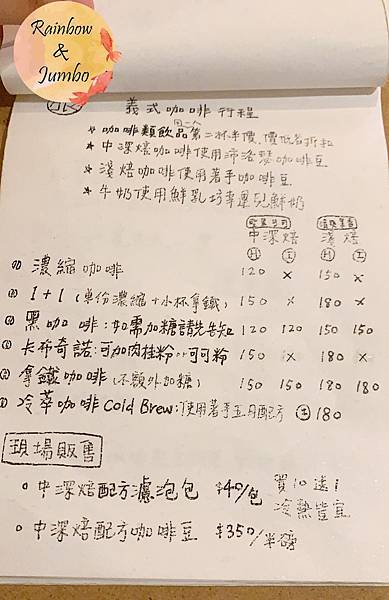 Rainbow
&
Jumbo
義式咖啡行程
同一人
* 咖啡類飲品第二杯半價,價低者折扣
* 中深焙咖啡使用沛洛瑟咖啡豆
* 淺焙咖啡使用著手咖啡豆
* 牛奶使用鮮乳坊幸運兒鮮奶
中深焙 淺焙
H I H I
濃縮咖啡 120 × 150 ×
1+1(單份濃縮+小杯拿鐵) 150 × 180 ×
黑咖啡:如需加糖請先告知 120 120 150 150
卡布奇諾:可加肉桂粉or可可粉 150 × 180 ×
拿鐵咖啡(不額外加糖) 150 150 180 180
冷萃咖啡Cold Brew:使用著手豆月配方 180
現場販售
○ 中深焙配方濾泡包 $40/包 買10送1
冷熱皆宜
○ 中深焙配方咖啡豆 $350/半磅